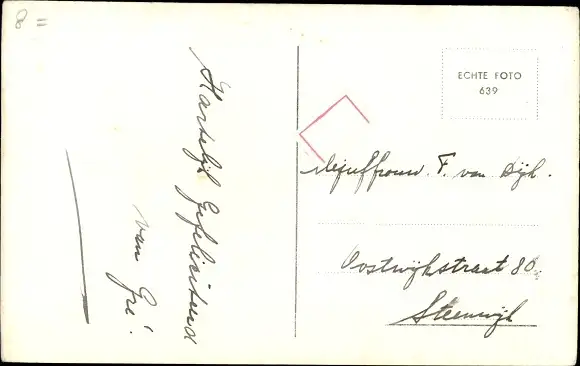 8 =
Hartelijk Gefeliciteerd
van Gré.
ECHTE FOTO
639
Mejuffrouw. F. van Dijk.
Oostwijkstraat 80.
Steenwijk